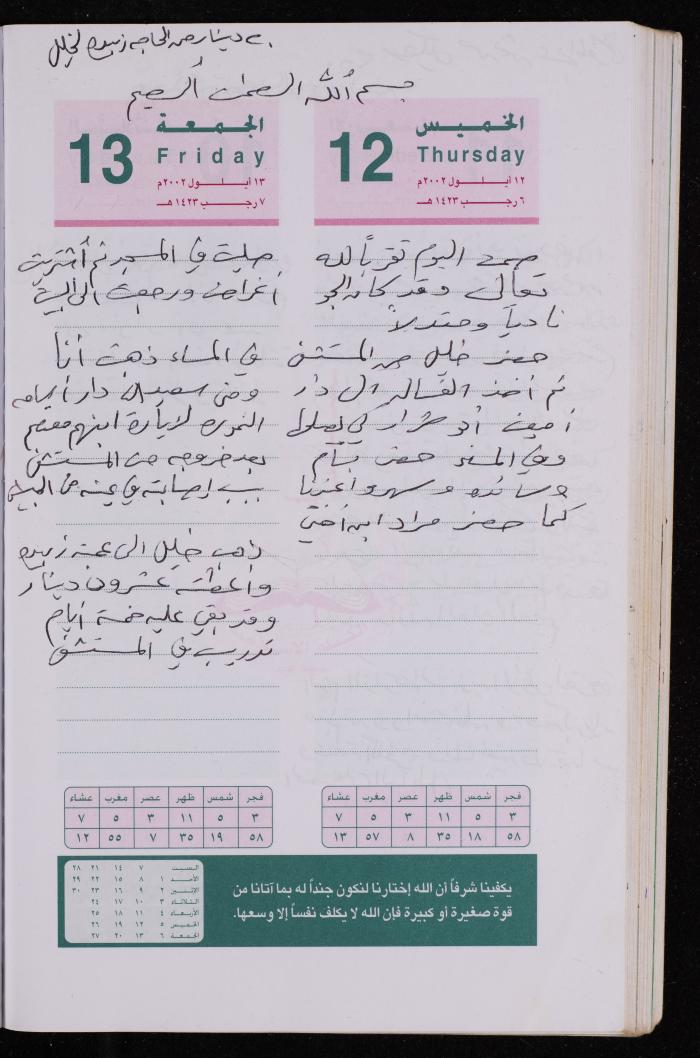 ٢٠ دينار من الحاجه زبيده لخليل
بسم الله الرحمن الرحيم
الخميس
Thursday
12
١٢ أيـلـول ٢٠٠٢م
٦ رجـب ١٤٢٣هـ
صمت اليوم تقرباً لله
تعالى وقد كان الجو
نادياً ومعتدلاً
حضر خليل من المستشفى
ثم أخذ الغسالة الى دار
أمين أبو شرار لي
وفي المساء حضر بسام
وسائده وسهروا عندنا
كما حضر مراد ابن أخي
الجمعة
Friday
13
١٣ أيـلـول ٢٠٠٢م
٧ رجـب ١٤٢٣هـ
صليت في المسجد ثم أشتريت
أغراض ورجعت الى البيت
في المساء ذهبت أنا
ومنى الى دار
النموره لزيارة ابنهم معتصم
بعد خروجه من المستشفى
بسبب إصابته في عينه من
ذهب خليل الى عمته زبيده
وأعطته عشرون دينار
وقد بقي عليه خمسة أيام
تدريب في المستشفى
فجر شمس ظهر عصر مغرب عشاء
٣ ٥ ١١ ٣ ٥ ٧
٥٨ ١٨ ٣٥ ٨ ٥٧ ١٣
فجر شمس ظهر عصر مغرب عشاء
٣ ٥ ١١ ٣ ٥ ٧
٥٨ ١٩ ٣٥ ٧ ٥٥ ١٢
يكفينا شرفاً أن الله إختارنا لنكون جنداً له بما آتانا من
قوة صغيرة أو كبيرة فإن الله لا يكلف نفساً إلا وسعها.
السبت ٧ ١٤ ٢١ ٢٨
الأحد ١ ٨ ١٥ ٢٢ ٢٩
الإثنين ٢ ٩ ١٦ ٢٣ ٣٠
الثلاثاء ٣ ١٠ ١٧ ٢٤
الأربعاء ٤ ١١ ١٨ ٢٥
الخميس ٥ ١٢ ١٩ ٢٦
الجمعة ٦ ١٣ ٢٠ ٢٧